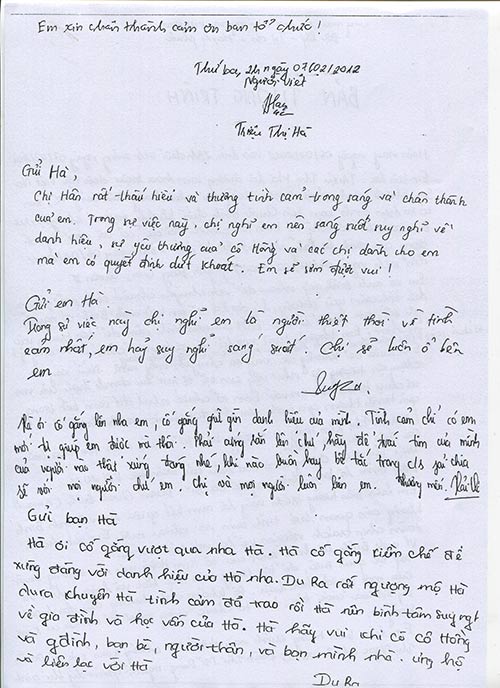 Em xin chân thành cảm ơn ban tổ chức !
Thứ ba, 2h ngày 07/02/2012
Người viết
Triệu Thị Hà
Gửi Hà,
Chị Hân rất thấu hiểu và thương tình cảm trong sáng và chân thành
của em. Trong sự việc này, chị nghĩ em nên sáng suốt suy nghĩ về
danh hiệu, sự yêu thương của cô Hồng và các chị dành cho em
mà em có quyết định dứt khoát. Em sẽ sớm được vui !
Gửi em Hà.
Trong sự việc này chị nghĩ em là người thiệt thòi về tình
cảm nhất, em hãy suy nghĩ sáng suốt. Chị sẽ luôn ở bên
em
Hà ơi cố gắng lên nha em, cố gắng giữ gìn danh hiệu của mình. Tình cảm chỉ có em
mới tự giúp em được mà thôi. Phải cứng rắn lên chứ, hãy để trái tim của mình
của người nào thật xứng đáng nhé, khi nào buồn hay bế tắc trong c/s sẽ chia
sẻ với mọi người chứ em. Chị và mọi người luôn bên em. Thương mến.
Gửi bạn Hà
Hà ơi cố gắng vượt qua nha Hà. Hà cố gắng kiềm chế để
xứng đáng với danh hiệu của Hà nha. Du Ra rất ngưỡng mộ Hà
dura khuyên Hà tình cảm đã trao rồi Hà nên bình tâm suy ngĩ
về gia đình và học vấn của Hà. Hà hãy vui khi có cô Hồng
và gđình, bạn bè, người thân, và bạn mình nha. ủng hộ
và liên lạc với Hà
Du Ra